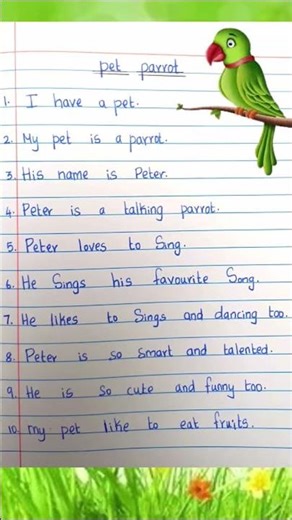 pet parrot
1. I have a pet.
2. My pet is a parrot.
3. His name is Peter.
4. Peter is a talking parrot.
5. Peter loves to Sing.
6. He Sings his favourite Song.
7. He likes to Sings and dancing too.
8. Peter is so smart and talented.
9. He is so cute and funny too.
10. my pet like to eat fruits.